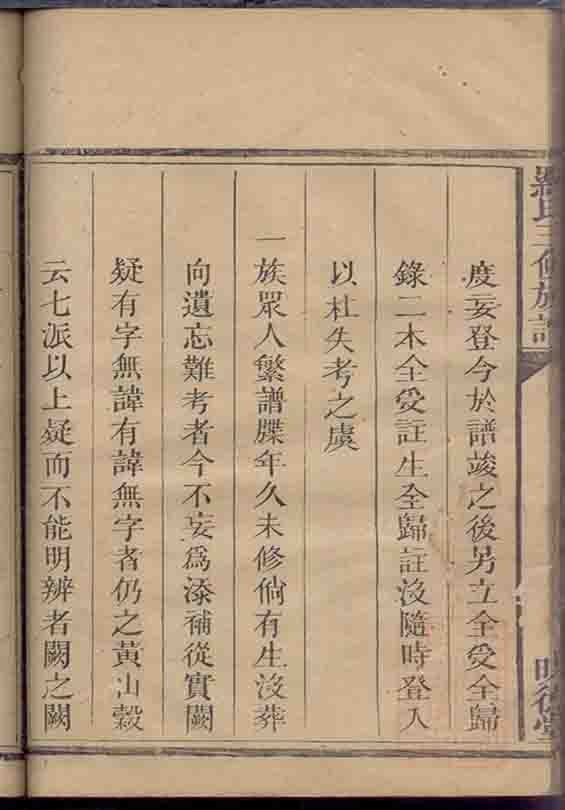 度妄登今於譜竣之後另立全受全歸
錄二本全受註生全歸註沒隨時登入
以杜失考之虞
一族眾人繁譜牒年久未修倘有生沒葬
向遺忘難考者今不妄為添補從實闕
疑有字無諱有諱無字者仍之黃山穀
云七派以上疑而不能明辨者闕之闕
氏三修族譜